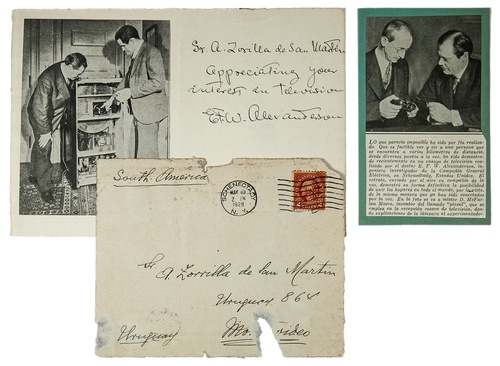 Sr A. Zorilla de San Martin
Appreciating your
interest in television
E.F.W. Alexanderson
South America
SCHENECTADY
MAY 23
2 PM
1928
N. Y.
Sr. A. Zorrilla de San Martin
Uruguay 864
Uruguay
LO que parecía imposible ha sido por fin realizado.
Que es factible ver y oír a una persona que
se encuentra a varios kilómetros de distancia,
desde diversos puntos a la vez, ha sido demostrado
recientemente en un ensayo de televisión realizado
por el doctor E. F. W. Alexanderson,
ingeniero investigador de la Compañía General
Eléctrica, en Schenectady, Estados Unidos. El
retrato, enviado por el aire en compañía de
la voz, demostró en forma definitiva la posibilidad
de unir los hogares en todo el mundo, por la vista,
de la misma manera que ya han sido conectados
por la voz. En la foto se ve a míster D. McFarlan
Moore, inventor del llamado
que se
emplea en la recepción casera de televisión, dando
explicaciones de la lámpara al experimentador.